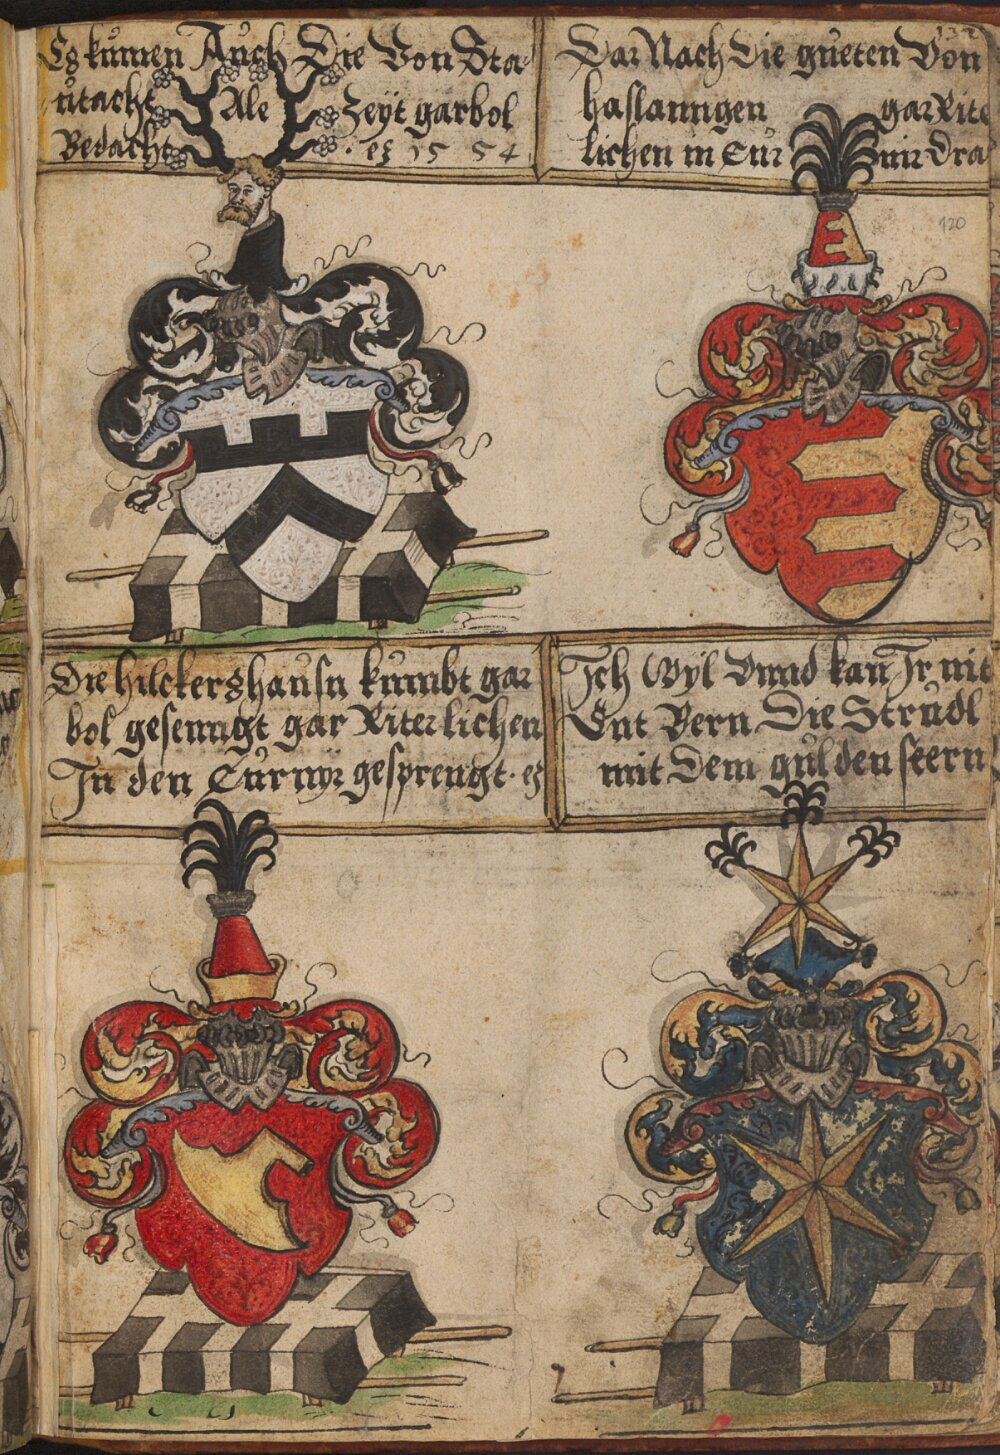 Es kumen Auch Die Von Sta
utacht Ale Zeyt gar bol
Bedacht · eß 1554
Dar Nach Die gueten Von
haslanngen gar Rite
lichen in Tur nir Dra
132
120
Die hilckershausn kumbt gar
bol gesenngt gar Riterlichen
In den Turnyr gesprengt · eß
Ich Wyl Vnnd kan Ir nit
Ent Bern Die Strudl
mit Dem gulden steern